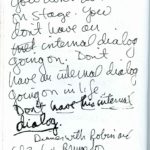 on stage. You
don't have an
internal dialog
going on. Don't
have an internal dialog
going on in life
Don't have this internal
dialog.
Dinner with Robin and